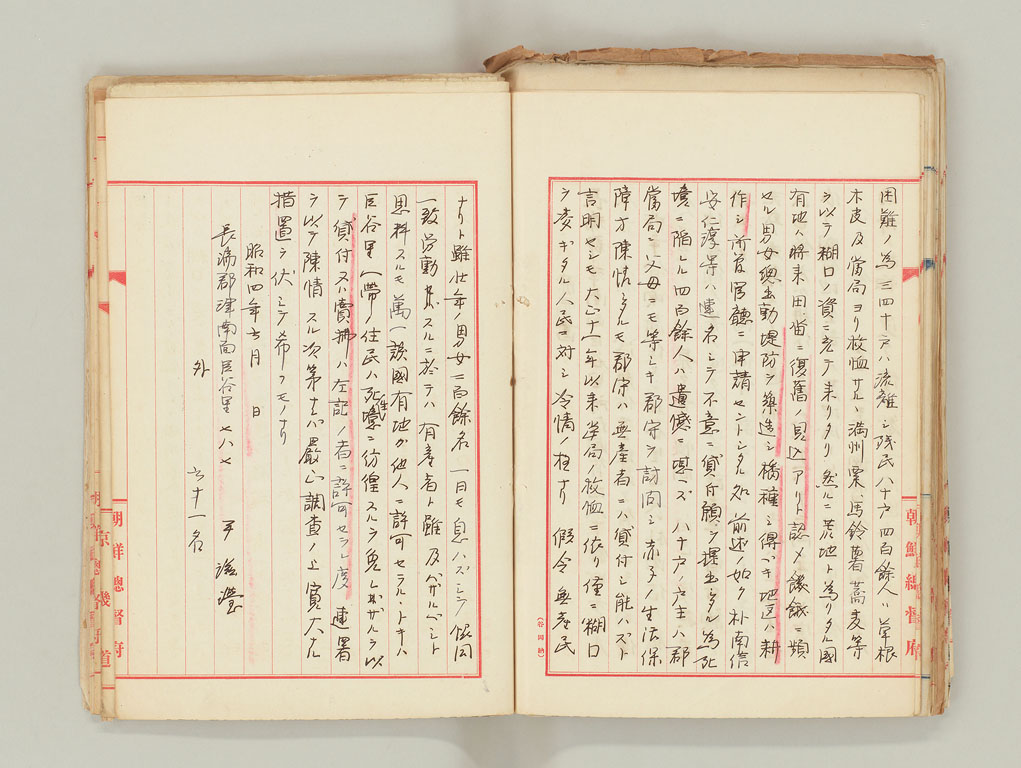 困難ノ為三四十戸ハ流離シ残民八十戸四百餘人ハ草根
木皮及當局ヨリ救恤サル、満州粟、馬鈴薯蕎麦等
ヲ以テ糊口ノ資ニ充テ来リタリ然ルニ荒地ト為リタル國
有地ハ将来田、畓ニ復舊ノ見込アリト認メ饑餓ニ瀕
セル男女総出動堤防ヲ築造シ播種シ得ベキ地区ハ耕
作シ所管官聽ニ申請セントシタル処前述ノ如ク朴南信
安仁淳等ハ連名シテ不意ニ貸付願ヲ提出シタル為死
境ニ陥レル四百餘人ハ遺憾ニ堪ヘズ八十戸ノ戸主ハ郡
當局ニ父母ニモ等シキ郡守ヲ訪問シ赤子ノ生活保
障方陳情シタルモ郡守ハ無産者ニハ貸付シ能ハズト
言明セシモ大正十一年以来當局ノ救恤ニ依リ僅ニ糊口
ヲ凌ギタル人民ニ対シ冷情ノ極ナリ假令無産民
ナリト雖壮年ノ男女二百餘名一日モ息ハズシテ協同
一致労動スルニ於テハ有産者ト雖及バザルベシト
思料スルモ萬一該國有地ガ他人ニ許可セラル、トキハ
巨谷里一帶ノ住民ハ死境ニ彷徨スルヲ免レザルヲ以
テ貸付又ハ賣拂ハ左記ノ者ニ許可セラレ度連署
ヲ以テ陳情スル次第ナレバ嚴正調査ノ上寛大ナル
措置ヲ伏シテ希フモノナリ
昭和四年七月 日
長湍郡津南面巨谷里七八七
外 六十一名
朝鮮總督府
(谷岡納)
朝鮮總督府
京畿道